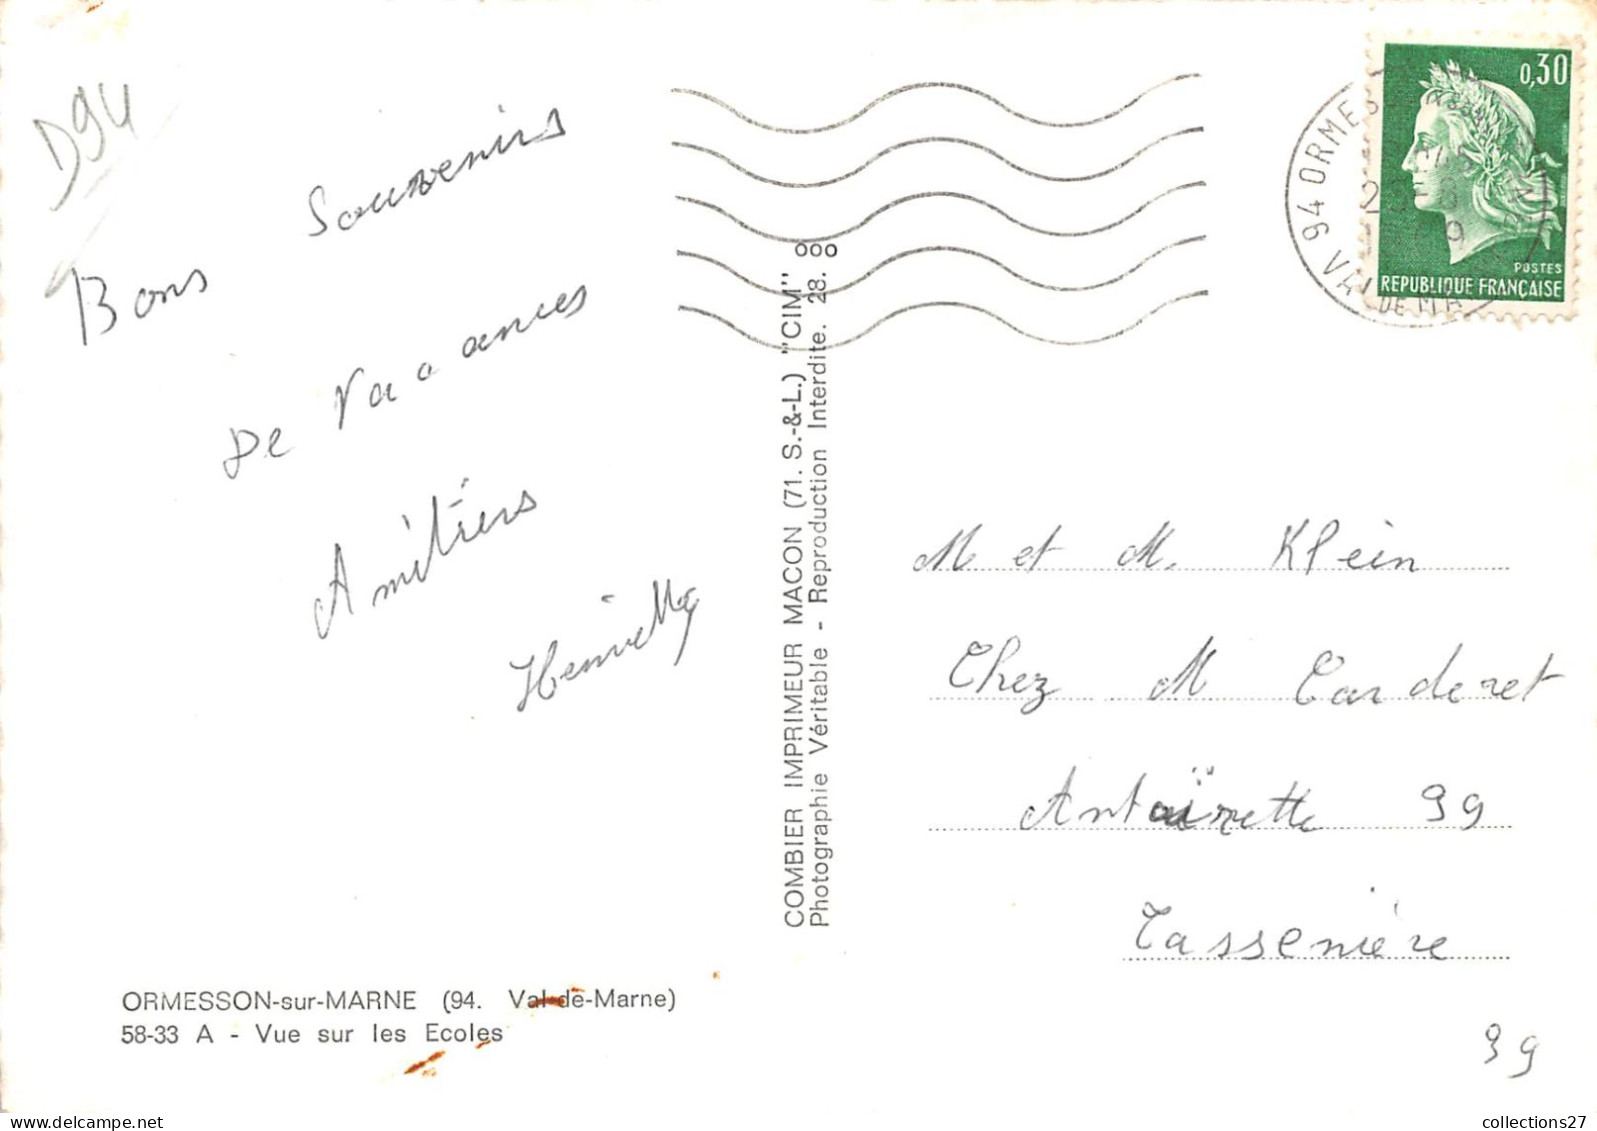 D94
Bons souvenirs
De Vacances
Amitiers
0,30
POSTES
REPUBLIQUE FRANÇAISE
94 ORMES
VAL DE MA
COMBIER IMPRIMEUR MACON (71. S.-&-L.) "CIM"
Photographie Véritable - Reproduction Interdite. 28. ooo
M et M. Klein
Chez M Carderet
Antoinette 39
Tassenière
39
ORMESSON-sur-MARNE (94. Val-de-Marne)
58-33 A - Vue sur les Ecoles
collections27